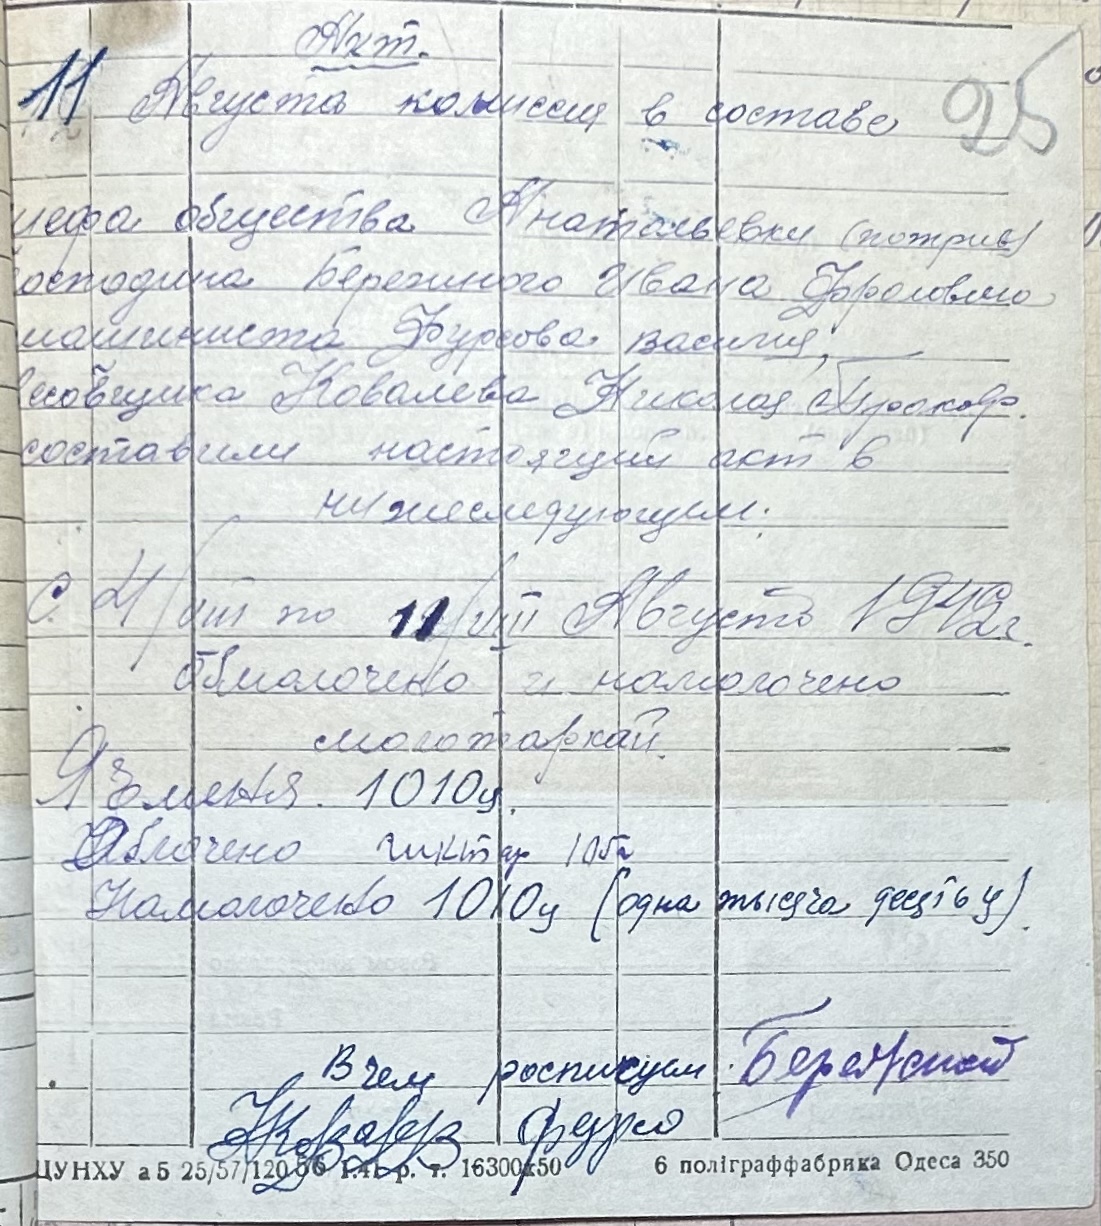 Акт.
25
11 Августа комиссия в составе
шефа общества Анатольевки (потриб)
господина Бережного Ивана Фроловича
машиниста Фурсова Василия,
весовщика Ковалева Николая Прокоф.
составили настоящий акт в
нижеследующем:
С. 4/VIII по 11/VIII Августа 1942г.
Обмолочено и намолочено
молотаркай.
Ячменя. 1010ц.
гиктар
Намолочено 1010ц (одна тысяча десять ц).
В чем роспикуем Бережной
ЦУНХУ а5 25/57/120 56 1.41 р. т. 16300х50 6 поліграффабрика Одеса 350